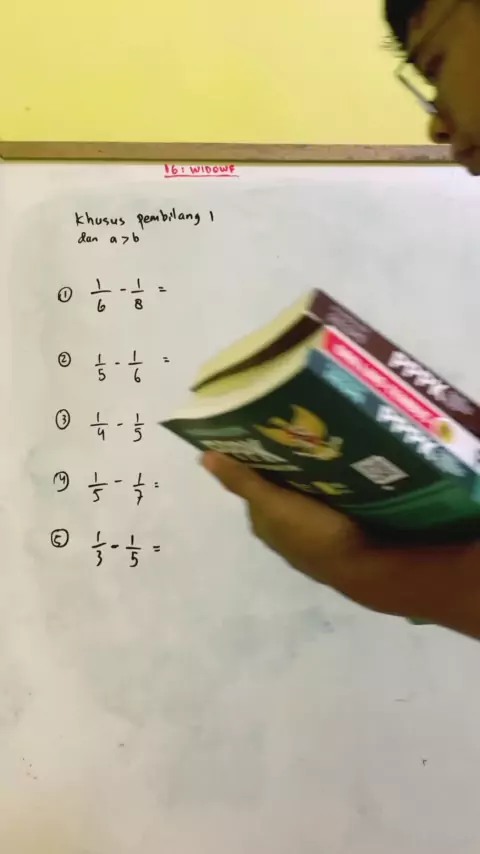 IG: WIDOWF
Khusus pembilang 1
dan a > b
① 1/6 - 1/8 =
② 1/5 - 1/6 =
③ 1/4 - 1/5
④ 1/5 - 1/7 =
⑤ 1/3 - 1/5 =
PPPK
PPPK